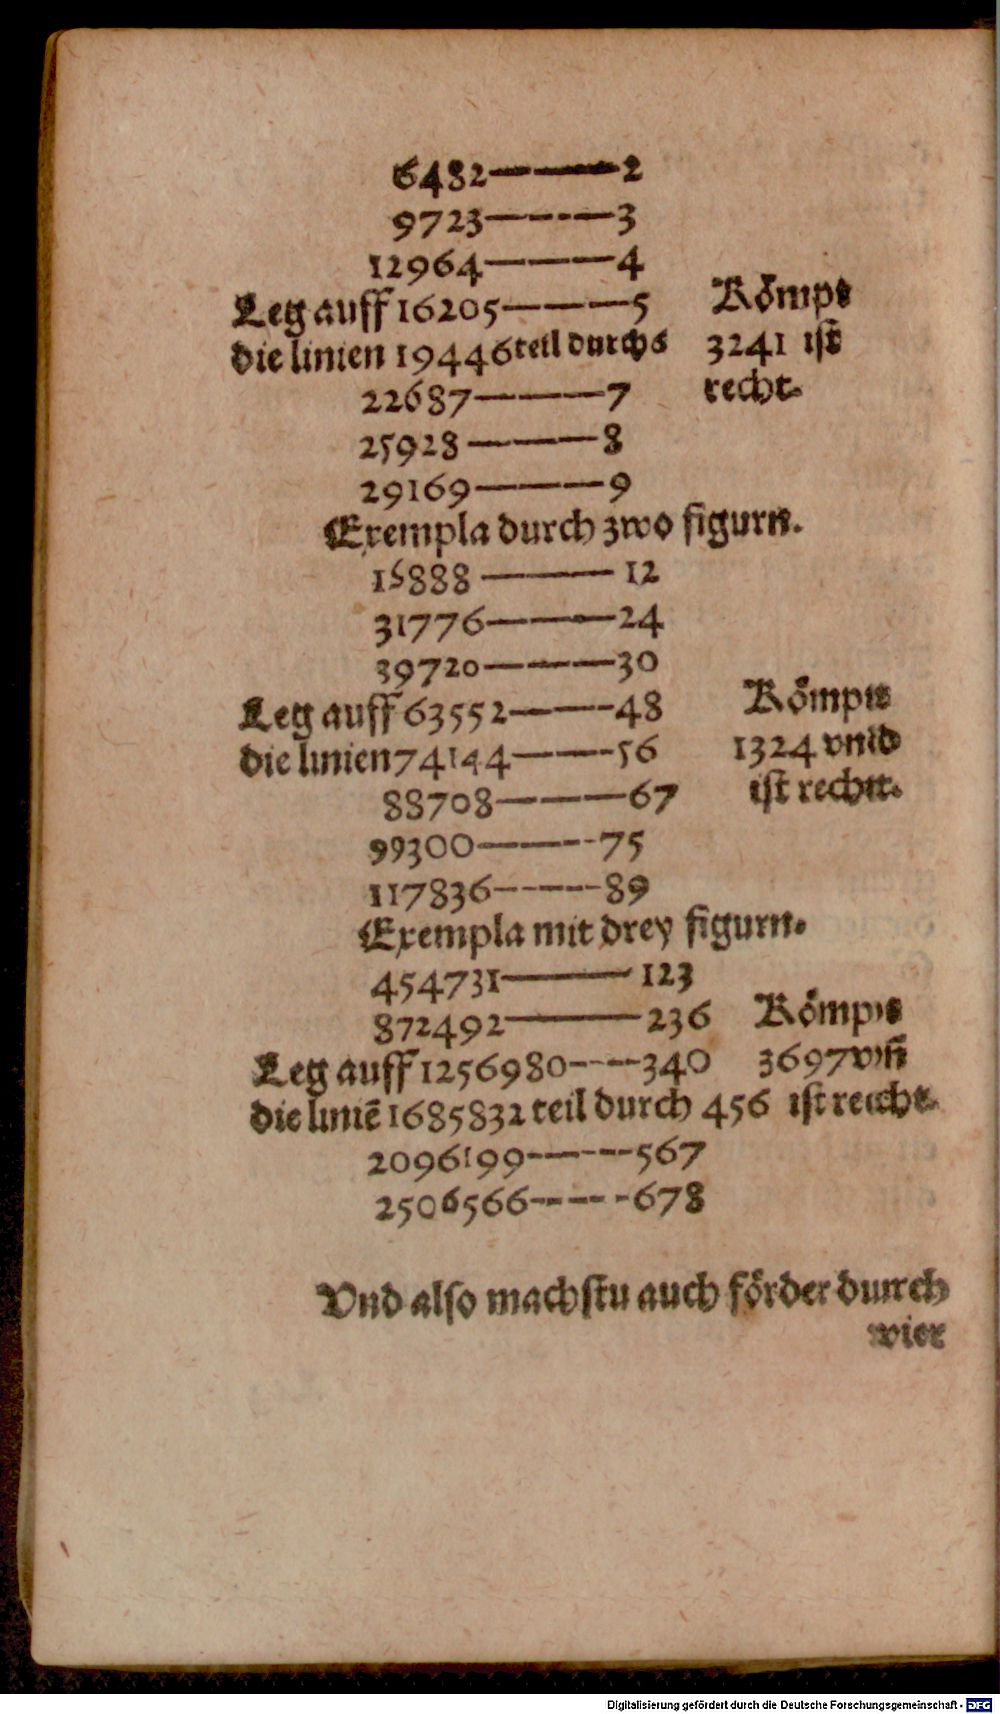 6482 — — — 2
9723 — — — 3
12964 — — — 4
Leg auff 16205 — — — 5 Kömpt
die linien 19446 teil durch 6 3241 ist
22687 — — — 7 recht.
25928 — — — 8
29169 — — — 9
Exempla durch zwo figurn.
15888 — — — 12
31776 — — — 24
39720 — — — 30
Leg auff 63552 — — — 48 Kömpt
die linien 74144 — — — 56 1324 vnd
88708 — — — 67 ist recht.
99300 — — — 75
117836 — — — 89
Exempla mit drey figurn.
454731 — — — 123
872492 — — — 236 Kömpt
Leg auff 1256980 — — — 340 3697 vñ
die liniē 1685832 teil durch 456 ist recht.
2096199 — — — 567
2506566 — — — 678
Vnd also machstu auch förder durch
vier
Digitalisierung gefördert durch die Deutsche Forschungsgemeinschaft - DFG